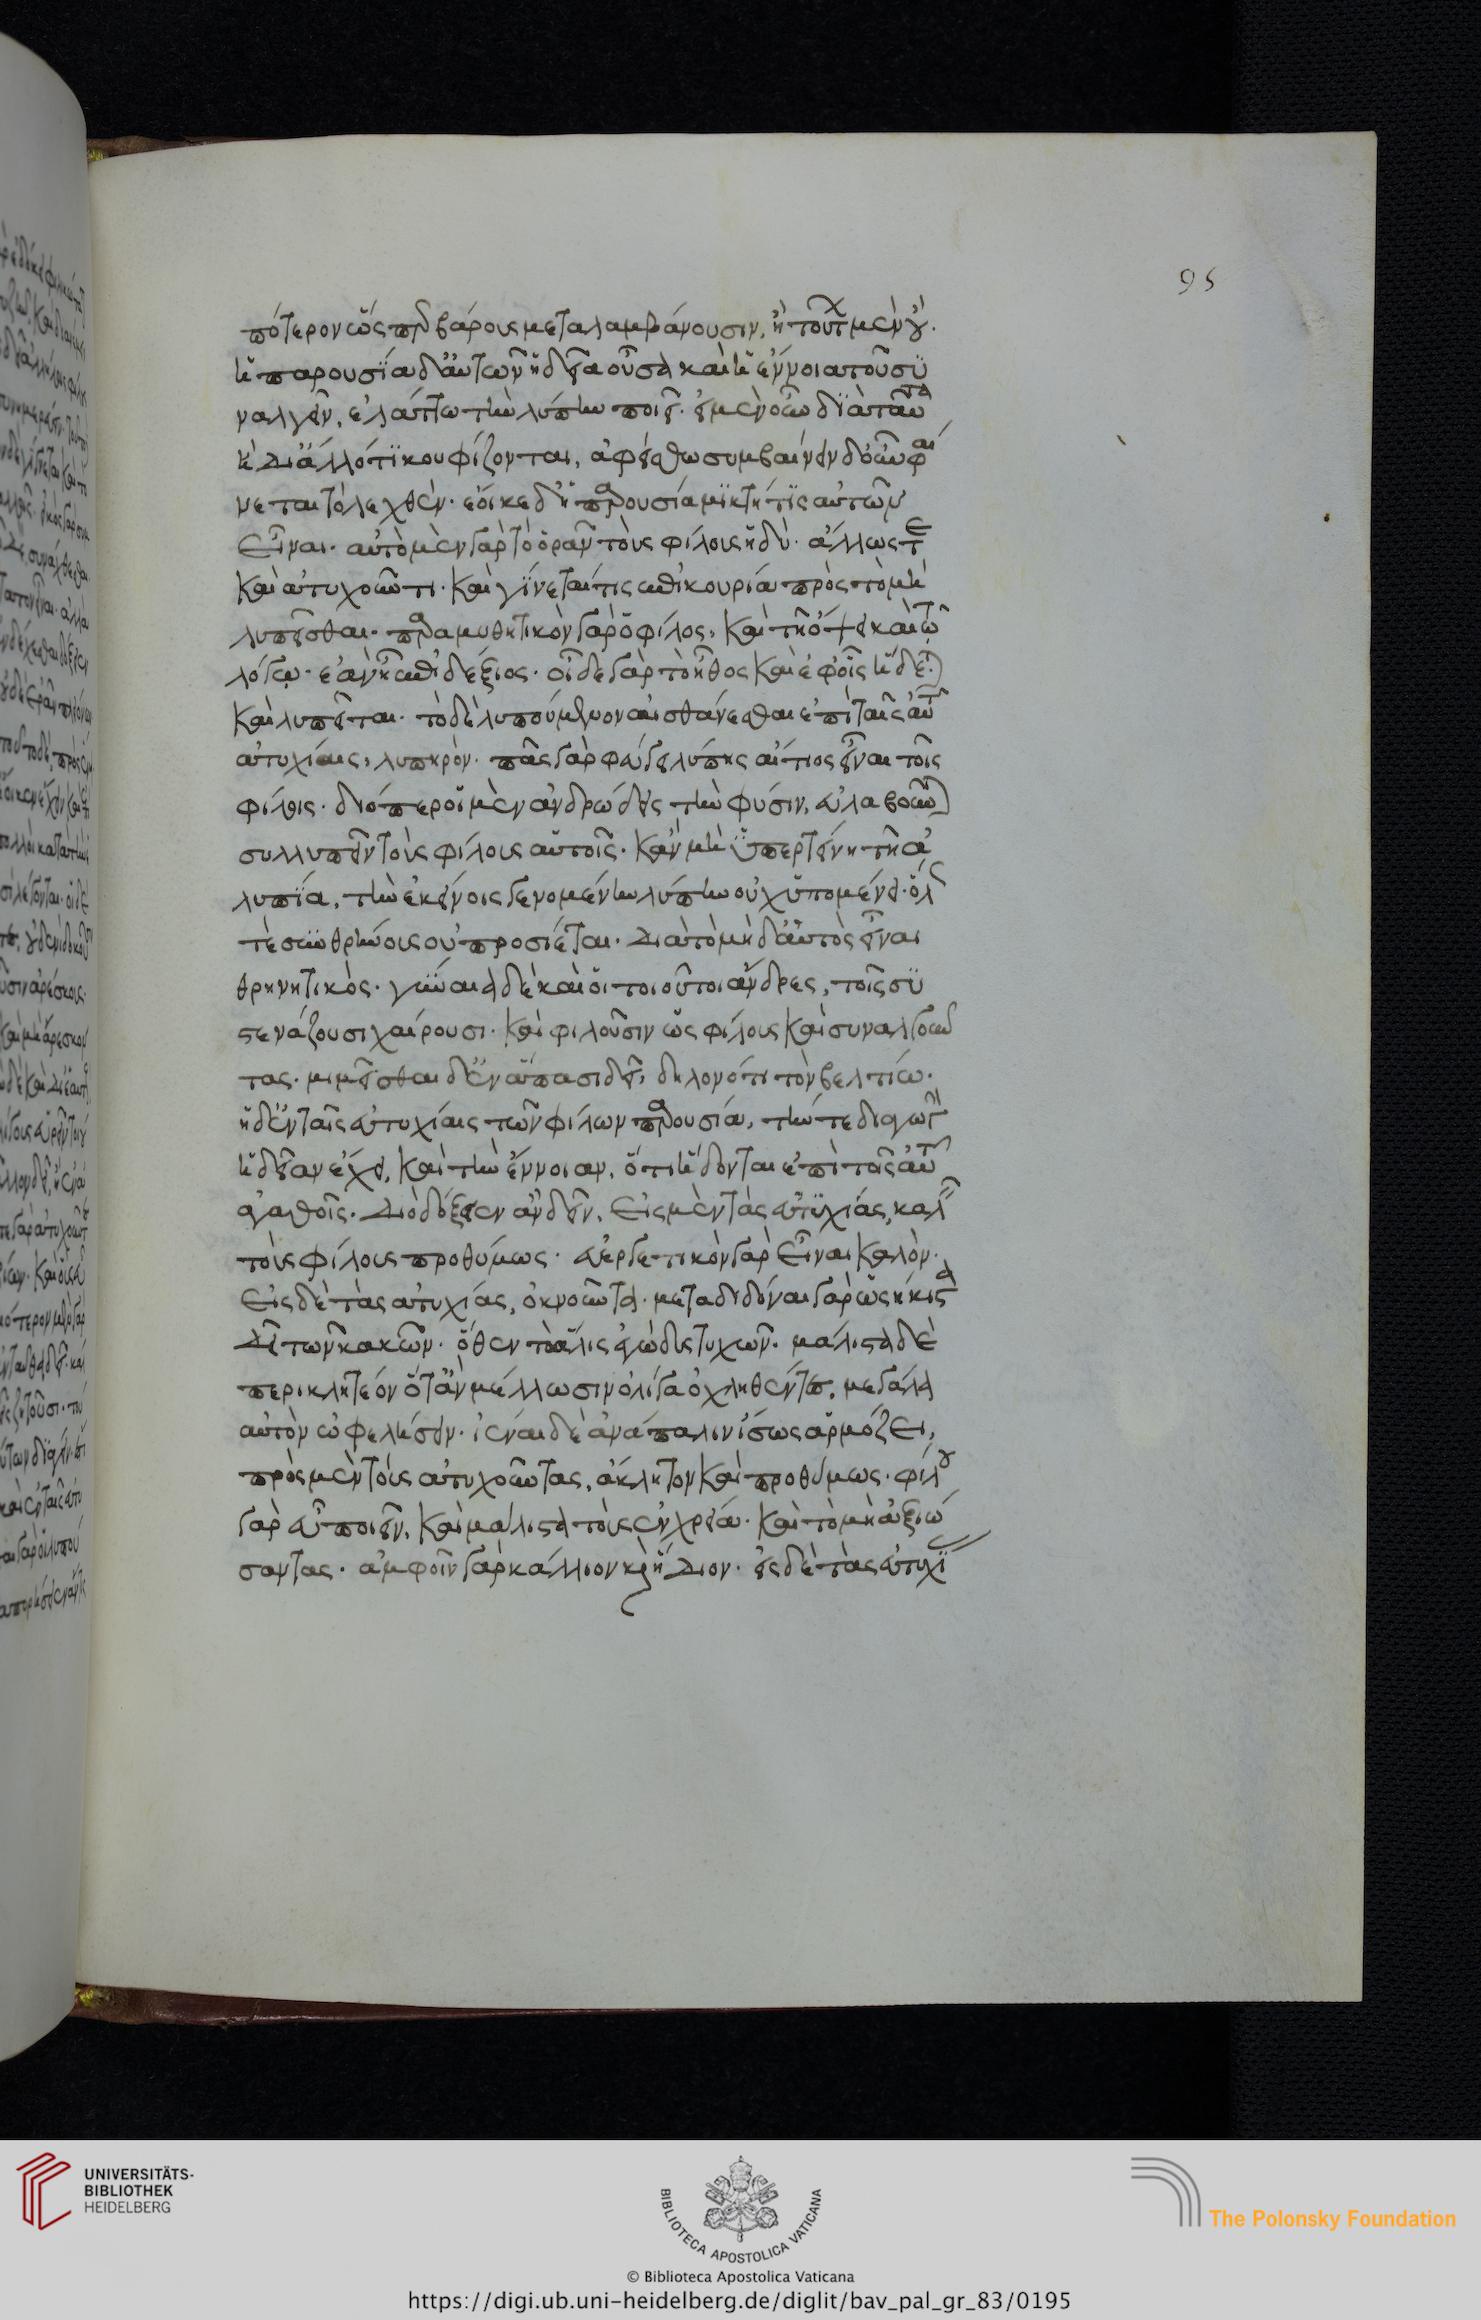 95
πότερον ὥσπερ βάρους μεταλαμβάνουσιν, ἢ τοῦτο μὲν οὔ.
ἡ παρουσία δ' αὐτῶν ἡδεῖα οὖσα καὶ ἡ ἔννοια τοῦ συ
ναλγεῖν, ἐλάττω τὴν λύπην ποιεῖ. εἰ μὲν οὖν διὰ ταῦτα
ἢ δι' ἄλλό τι κουφίζονται, ἀφείσθω συμβαίνειν δ' οὖν φαί
νεται τὸ λεχθέν. ἔοικε δ' ἡ παρουσία μικτή τις αὐτῶν
εἶναι. αὐτὸ μὲν γὰρ τὸ ὁρᾶν τοὺς φίλους ἡδύ. ἄλλως τε
καὶ ἀτυχοῦντι. καὶ γίνεταί τις ἐπικουρία πρὸς τὸ μὴ
λυπεῖσθαι. παραμυθητικὸν γὰρ ὁ φίλος, καὶ τῇ ὄψει καὶ τῷ
λόγῳ. ἐὰν ᾖ ἐπιδέξιος. οἶδε γὰρ τὸ ἦθος καὶ ἐφ' οἷς ἥδεται
καὶ λυπεῖται. τὸ δὲ λυπούμενον αἰσθάνεσθαι ἐπὶ ταῖς αὐτοῦ
ἀτυχίαις, λυπηρόν. πᾶς γὰρ φεύγει λύπης αἴτιος εἶναι τοῖς
φίλοις. διόπερ οἱ μὲν ἀνδρώδεις τὴν φύσιν, εὐλαβοῦνται
συλλυπεῖν τοὺς φίλους αὑτοῖς. κἂν μὴ ὑπερτείνῃ τῇ ἀ
λυπίᾳ, τὴν ἐκείνοις γενομένην λύπην οὐχ ὑπομένει. ὅλως
τὲ συνθρήνους οὐ προσίεται. διὰ τὸ μὴ δ' αὐτὸς εἶναι
θρηνητικός. γύναια δὲ καὶ οἱ τοιοῦτοι ἄνδρες, τοῖς συ
στενάζουσι χαίρουσι. καὶ φιλοῦσιν ὡς φίλους καὶ συναλγοῦν
τας. μιμεῖσθαι δ' ἐν ἅπασι δεῖ, δηλονότι τὸν βελτίω.
ἡ δ' ἐν ταῖς εὐτυχίαις τῶν φίλων παρουσία, τήν τε διαγωγὴν
ἡδεῖαν ἔχει, καὶ τὴν ἔννοιαν, ὅτι ἥδονται ἐπὶ τοῖς αὐτοῦ
ἀγαθοῖς. διὸ δόξειεν ἂν δεῖν, εἰς μὲν τὰς εὐτυχίας, καλεῖν
τοὺς φίλους προθύμως. εὐεργετικὸν γὰρ εἶναι καλόν.
εἰς δὲ τὰς ἀτυχίας, ὀκνοῦντα. μεταδιδόναι γὰρ ὡς ἥκιστα
δεῖ τῶν κακῶν. ὅθεν τὸ ἅλις ἐγὼ δυστυχῶν. μάλιστα δὲ
περικλητέον ὅταν μέλλωσιν ὀλίγα ὀχληθέντες, μεγάλα
αὐτὸν ὠφελήσειν. ἰέναι δὲ ἀνάπαλιν ἴσως ἁρμόζει,
πρὸς μὲν τοὺς ἀτυχοῦντας, ἄκλητον καὶ προθύμως. φίλου
γὰρ εὖ ποιεῖν, καὶ μάλιστα τοὺς ἐν χρείᾳ. καὶ τὸ μὴ ἀξιώ
σαντας. ἀμφοῖν γὰρ κάλλιον καὶ ἥδιον. εἰς δὲ τὰς εὐτυχί
UNIVERSITÄTS-
BIBLIOTHEK
HEIDELBERG
BIBLIOTECA APOSTOLICA VATICANA
The Polonsky Foundation
© Biblioteca Apostolica Vaticana
https://digi.ub.uni-heidelberg.de/diglit/bav_pal_gr_83/0195